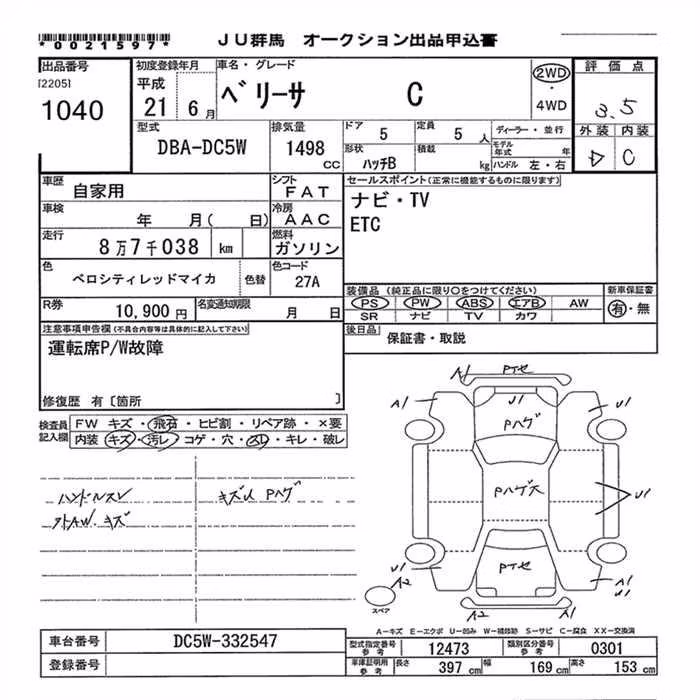 *0021597*
JU群馬 オークション出品申込書
出品番号
[2205]
1040
初度登録年月
平成
21 6月
車名・グレード
ベリーサ C
2WD
・
4WD
評価点
3.5
外装 内装
C
型式
DBA-DC5W
排気量
1498
CC
ドア 5
定員 5 人
ディーラー・並行
形状
ハッチB
積載 kg
モデル年式 年
ハンドル 左・右
車歴
自家用
シフト
FAT
セールスポイント(正常に機能するものに限ります)
ナビ・TV
ETC
車検
年 月( 日)
冷房
AAC
走行
8万7千038 km
燃料
ガソリン
色
ベロシティレッドマイカ
色替
色コード
27A
装備品 (純正品に限り○をつけてください)
PS PW ABS エアB AW
SR ナビ TV カワ
新車保証書
有・無
R券
10,900円
名変通知期限
月 日
後日品
保証書・取説
注意事項申告欄(不具合内容等は具体的に記入して下さい)
運転席P/W故障
修復歴 有〔箇所 〕
検査員
記入欄
FW キズ・飛石・ヒビ割・リペア跡・×要
内装 キズ・汚レ・コゲ・穴・スレ・キレ・破レ
ハンドルスレ
キズ凹 Pハゲ
AW. キズ
A1 Pヤセ A1
A1 U1 U1
Pハゲ
Pハゲス
U1
Pヤセ
U1
A2
A1
U1
A2 A1
スペア
A-キズ E-エクボ U-凹み W-補修跡 S-サビ C-腐食 XX-交換済
車台番号
DC5W-332547
登録番号
型式指定番号
参考
12473
類別区分番号
参考
0301
車庫証明用
参考
長さ 397 cm
幅 169 cm
高さ 153 cm